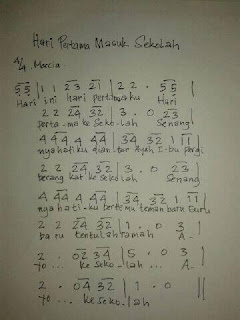 Hari Pertama Masuk Sekolah
4/4 Marcia
5 5 | 1 1 23 21 | 2 2 . 5 5 |
Hari ini hari pertamaku Hari
2 2 24 32 | 3 . 0 23
perta-ma ke seko-lah Senang
4 44 4 4 4 | 34 32 1 11 |
nya hatiku dian tar Ayah I-bu pergi
2 2 24 32 | 3 . 0 23
berang kat ke sekolah Senang
4 44 4 4 4 | 34 32 1 11 |
nya hati-ku bertemu teman baru Guru
2 2 24 32 | 1 . 0 3 |
ba ru tentulah ramah A-
2 . 02 34 | 5 . 0 3
yo ... ke seko-lah ... A-
2 . 04 32 | 1 0 ||
yo ... ke sekolah